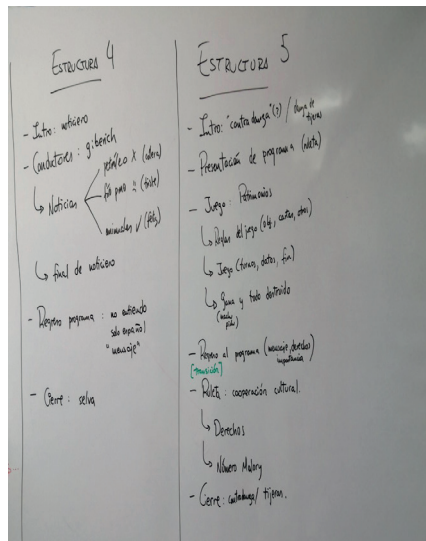 ESTRUCTURA 4
- Intro: noticiero
- Conductores: giberich
↳ Noticias
petróleo X (cólera)
(triste)
animales ✓ (feliz)
↳ final de noticiero
- Regreso programa: no entiendo
solo español
"mensaje"
- Cierre: selva
ESTRUCTURA 5
- Intro: "contradanza" (?) / danza de
tijeras
- Presentación de programa (ruleta)
- Juego: Patrimonios
↳ Reglas del juego (obj, cartas, otros)
↳ Juego (turnos, datos, fin)
↳ Gana y todo destruido
- Regreso al programa (mensaje, derechos)
importancia
[transición]
- Ruleta: cooperación cultural.
↳ Derechos
↳ Número Malory
- Cierre: contradanza / tijeras.